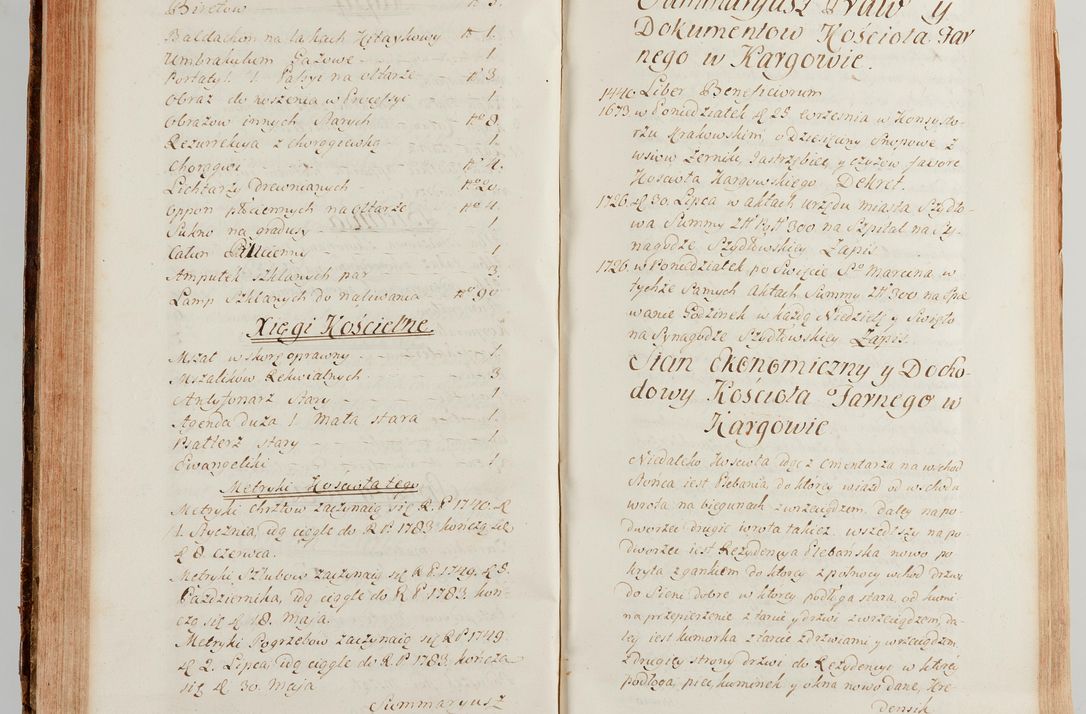 Biretow - - - - № 3.
Baldachon na łatkach Kitaykowy № 1.
Umbrakulum Gazowe - - 1
Portatyl 1 Passyi na ołtarze - № 3
Obraz do noszenia w Processyi 1.
Obrazow innych Starych - № 8.
Rezurrekcya z chorągiewką - 1.
Chorągwi - - - № 4.
Lichtarzy Drewnianych - № 20.
Oppon płóciennych na ołtarze № 4.
Sukno na gradusy - - 1.
Całun Płócienny - - 1
Ampułek Szklanych par - 3.
Lamp Szklanych do naliwania № 90
Xięgi Kościelne
Mszał w skorę oprawny - - 1.
Mszalikow Rekwialnych - - 3
Antyfonarz Stary - - - 1
Agenda duża 1 Mała stara 1.
Psałterz stary - - - 1.
Ewangeliki - - - 1
Metryki Kościoła tego
Metryki Chrztow zaczynaią się R. P. 1740. d.
1. Stycznia, idą ciągle do R. P. 1783 kończą się
d 8 Czerwca.
Metryki Szlubow zaczynaią się R. P. 1749. d 8.
Pazdziernika, idą ciągle do R P 1783 koń-
czą się d 18. Maja.
Metryki Pogrzebow zaczynaią się R. P 1749.
d 2. Lipca, idą ciągle do R. P 1783. kończą
się d 30. Maja
Summaryusz
Summaryusz Praw y
Dokumentow Kościoła Far
nego w Kargowie.
1440. Liber Beneficiorum
1673. w Poniedziałek d 25 Września w Konsysto-
rzu Krakowskim, o Dziesięciny Snopowe z
wsiow Zerniki, Jastrzębiec, y Czyżew favore
Kościoła Kargowskiego Dekret.
1726. d 30. Lipca w aktach urzędu miasta Szydło-
wa Summy Zł P. 300 na Szpital na Sy-
nagodze Szydłowskiey Zapis
1726. w Poniedziałek po Swięcie S. Marcina w
tychże Samych Aktach Summy Zł 300 na Spie
wanie Godzinek w każdą Niedzielę y Swięto
na Synagodze Szydłowskiey Zapis.
Stan Ekonomiczny y Docho-
dowy Kościoła Farnego w
Kargowie
Niedaleko Kościoła idąc z Cmentarza na wschod
Słońca iest Plebania do ktorey wiazd od wschodu
wrota na biegunach z wrzeciądzem. daley na po-
dworze drugie wrota takież. wszedłszy na po-
dworze iest Rezydencya Plebańska nowo po
kryta z gankiem do ktorey z pułnocy wchod drzwi
do Sieni dobre w ktorey podłoga stara, od kumi
na przepierzenie z tarcic y drzwi z wrzeciądzem, da-
ley iest kumorka z tarcic z drzwiami y wrzeciądzem,
z drugiey strony drzwi do Rezydencyi w ktorey
podłoga, piec, kuminek y okna nowo dane, Kre-
densik